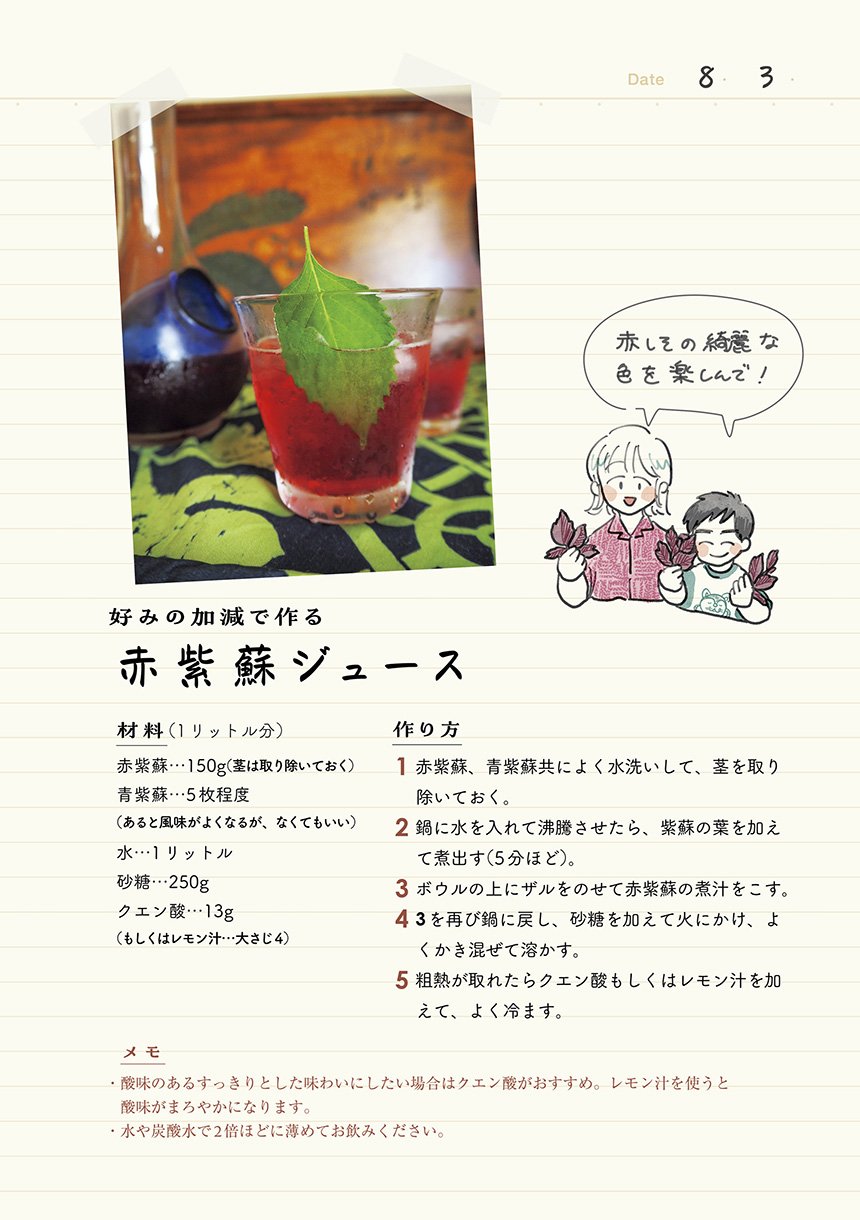 Date 8・ 3・
赤しその綺麗な
色を楽しんで！
好みの加減で作る
赤紫蘇ジュース
材料（1リットル分）
赤紫蘇…150g（茎は取り除いておく）
青紫蘇…5枚程度
（あると風味がよくなるが、なくてもいい）
水…1リットル
砂糖…250g
クエン酸…13g
（もしくはレモン汁…大さじ4）
作り方
1 赤紫蘇、青紫蘇共によく水洗いして、茎を取り
除いておく。
2 鍋に水を入れて沸騰させたら、紫蘇の葉を加え
て煮出す（5分ほど）。
3 ボウルの上にザルをのせて赤紫蘇の煮汁をこす。
4 3を再び鍋に戻し、砂糖を加えて火にかけ、よ
くかき混ぜて溶かす。
5 粗熱が取れたらクエン酸もしくはレモン汁を加
えて、よく冷ます。
メモ
・酸味のあるすっきりとした味わいにしたい場合はクエン酸がおすすめ。レモン汁を使うと
酸味がまろやかになります。
・水や炭酸水で2倍ほどに薄めてお飲みください。